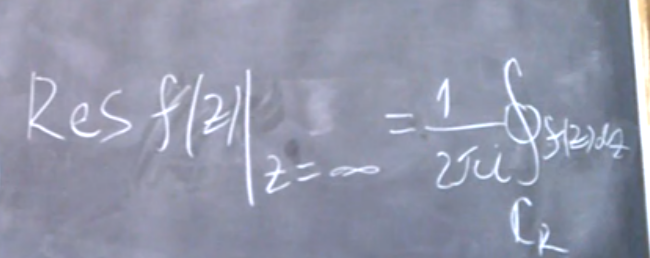 Res f(z)|_{z=∞} = \frac{1}{2πi} ∮_{C_R} f(z)dz